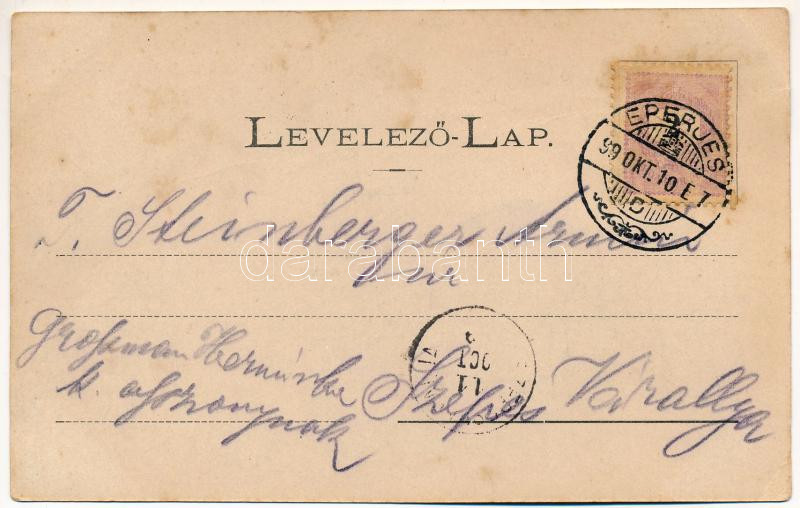 LEVELEZŐ-LAP.
EPERJES
99 OKT. 10 E 7
D
T. Steinberger Ármin
úr
darabanth
Grossman Herminke
k. asszonynak
Szepes Várallya
OCT
11